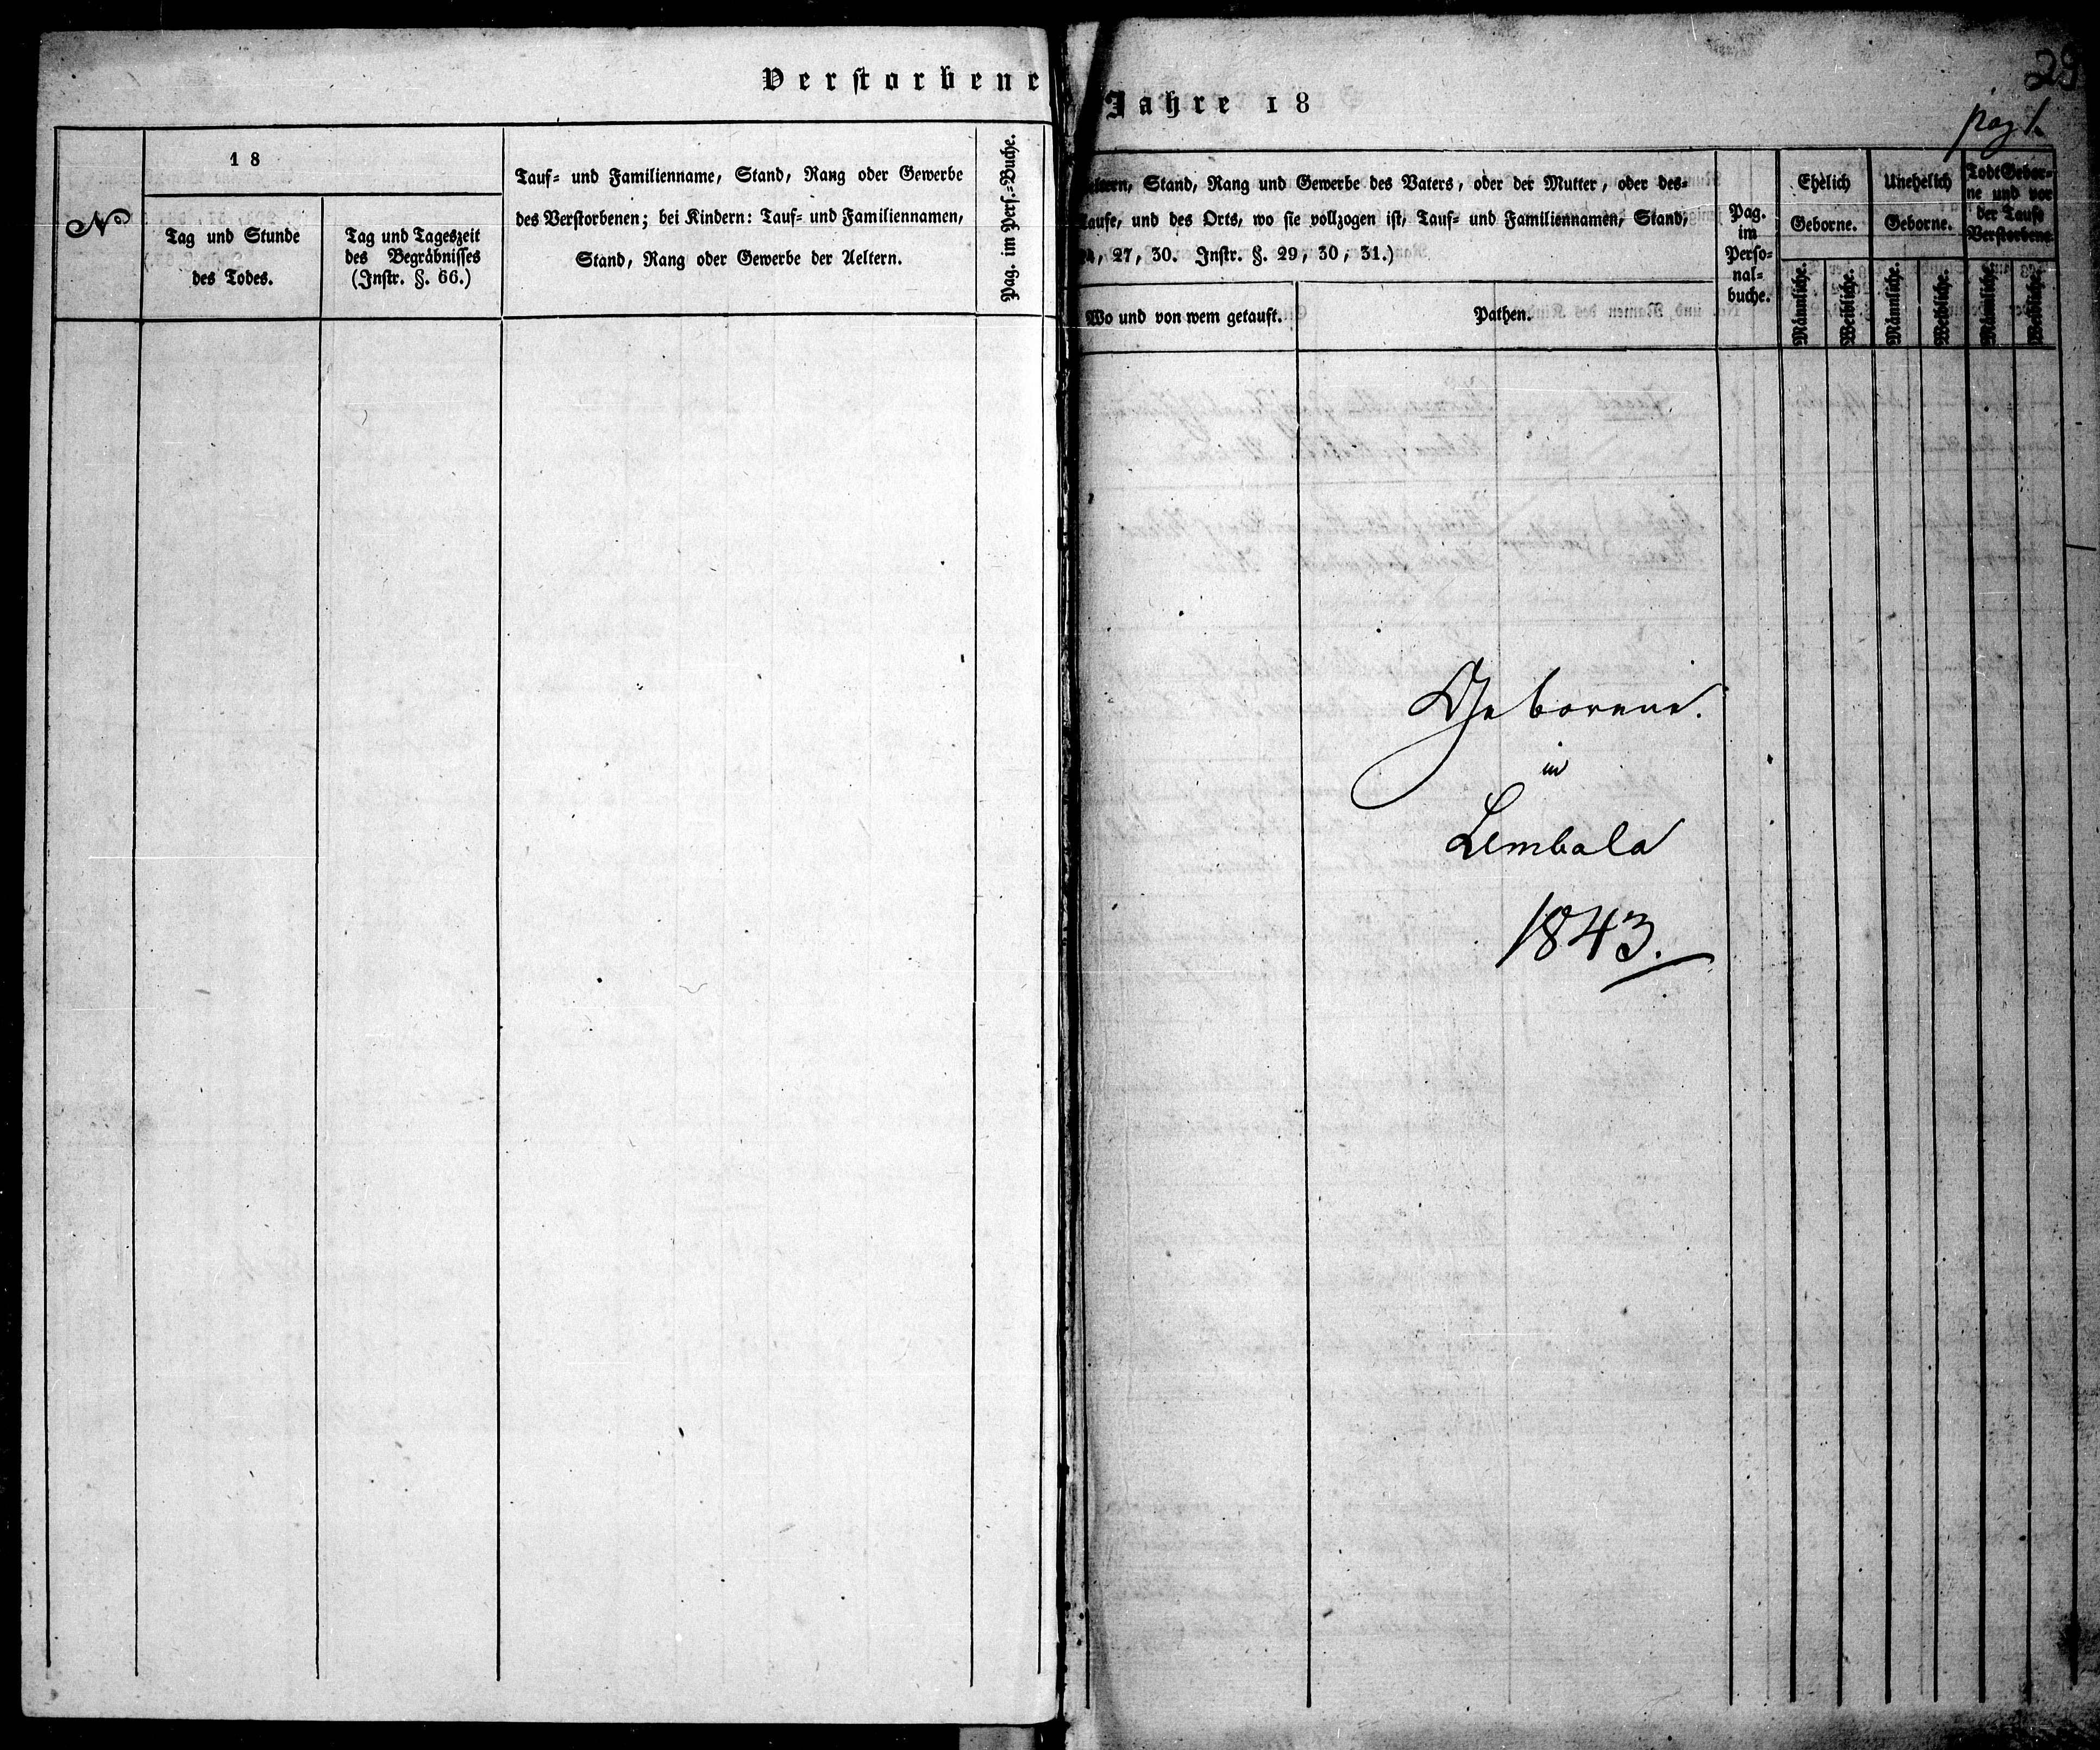 Verstorbene
N°
18
Tag und Stunde
des Todes.
Tag und Tageszeit
des Begräbnisses
(Instr. §. 66.)
Tauf= und Familienname, Stand, Rang oder Gewerbe
des Verstorbenen; bei Kindern: Tauf= und Familiennamen,
Stand, Rang oder Gewerbe der Aeltern.
Pag. im Pers.=Buche.
29
pag 1.
Jahre 18
Stand, Rang und Gewerbe des Vaters, oder der Mutter, oder des=
und des Orts, wo sie vollzogen ist, Tauf= und Familiennamen, Stand,
27, 30. Instr. §. 29, 30, 31.)
Wo und von wem getauft.
Pathen.
Pag.
im
Perso=
nal=
buche.
Ehelich
Geborne.
Männliche.
Weibliche.
Unehelich
Geborne.
Männliche.
Weibliche.
Todt Gebor=
ne und vor
der Taufe
Verstorbene
Männliche.
Weibliche.
Geborene.
in
Lembala
1843.